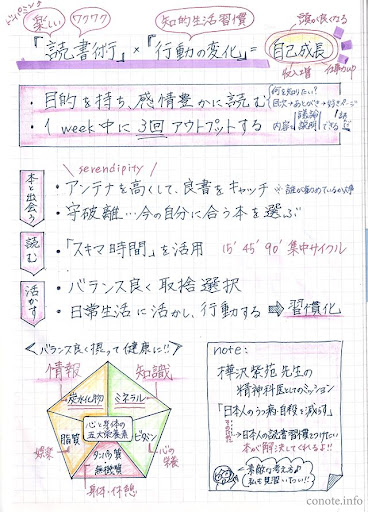 楽しい
ワクワク
知的生活習慣
頭が良くなる
『読書術』×『行動の変化』＝自己成長
収入増
仕事力up
・目的を持ち、感情豊かに読む
何を知りたい?
目次→あとがき→好きページ
・1week中に3回アウトプットする
内容を
議論
説明
できる
serendipity
本と出会う
・アンテナを高くして、良書をキャッチ
※誰が勧めているか大事
・守破離…今の自分に合う本を選ぶ
読む
・「スキマ時間」を活用 15' 45' 90' 集中サイクル
活かす
・バランス良く取捨選択
・日常生活に活かし、行動する ⇒ 習慣化
<バランス良く摂って健康に!!>
情報
知識
炭水化物
ミネラル
心と身体の
五大栄養素
脂質
ビタミン
タンパク質
無機質
娯楽
心の栄養
身体・休憩
note:
樺沢紫苑先生の
精神科医としてのミッション
「日本人のうつ病・自殺を減らす」
→日本人の読書習慣をつけたい
本が解決してくれるよ!!
素敵な考え方♪
私も見習いたい!!
conote.info